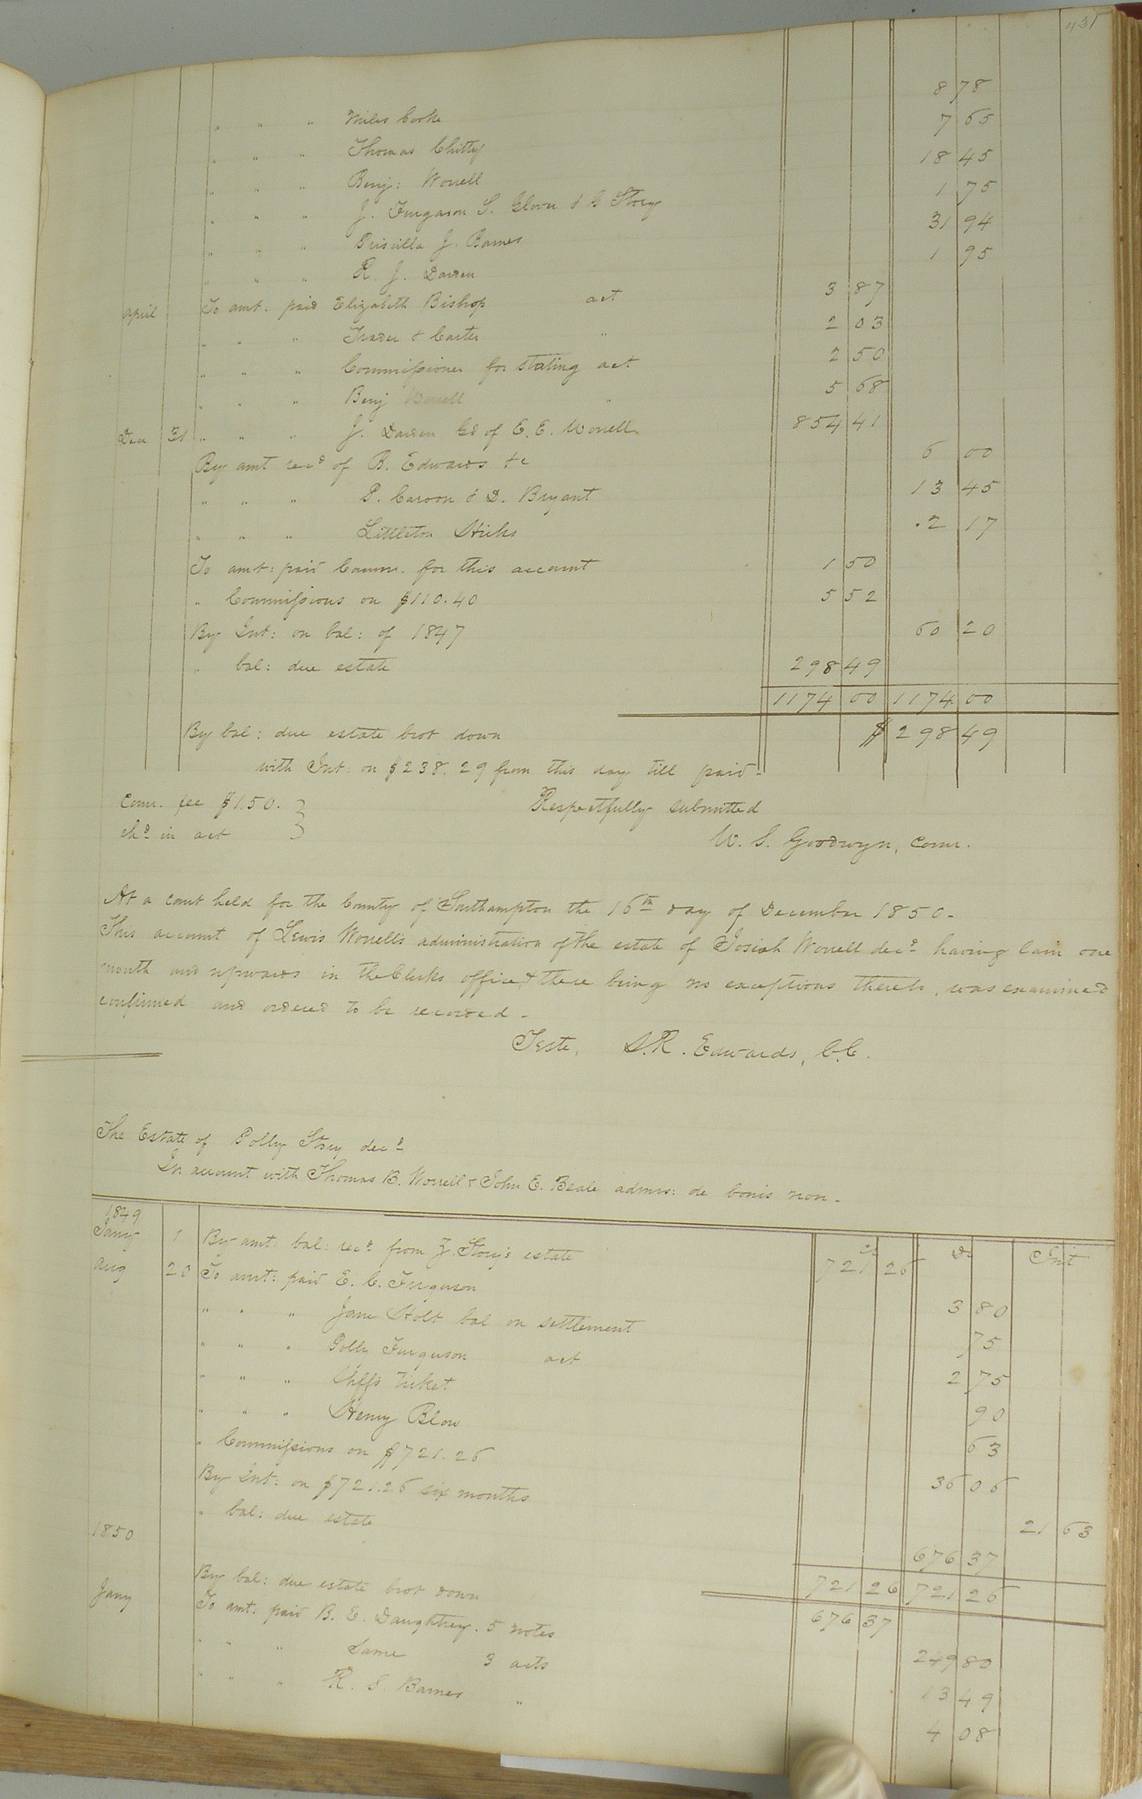 431
" " " Miles Cooke 8 78
" " " Thomas Chitty 7 65
" " " Benj: Worrell 18 45
" " " J. Furgason S. Glover & Story 1 75
" " " Priscilla J. Barnes 31 94
" " " R. J. Darden 1 95
April To amt: paid Elizabeth Bishop act 3 87
" " " Trader & Carter " 2 03
" " " Commissioner for stating act 2 50
" " " Benj Worrell " 5 68
Dec 31 " " " J. Darden Gd of E. E. Worrell 854 41
By amt recd of B. Edwards &c 6 00
" " " P. Carson & D. Bryant 13 45
" " " Littleton Hicks 2 17
To amt: paid Comm. for this account 1 50
" Commissions on $110.40 5 52
By Int: on bal: of 1847 60 20
" bal: due estate 298 49
1174 00 1174 00
By bal: due estate brot down $298 49
with Int: on $238.29 from this day till paid-
Comr. fee $1.50. Respectfully submitted
chd in act W. S. Goodwyn, Comr.
At a court held for the County of Southampton the 16th day of December 1850-
This account of Lewis Worrell's administration of the estate of Josiah Worrell decd having lain one
month and upwards in the Clerks office & there being no exceptions thereto, was examined
confirmed and ordered to be recorded-
Teste, L.R. Edwards, C.C.
The Estate of Polly Story decd
In account with Thomas B. Worrell & John E. Beale admrs: de bonis non-
1849 Cr Dr Int
Jany 1 By amt: bal: recd from Z Story's estate 721 26
Aug 20 To amt: paid E. C. Furguson 3 80
" " " Jane Holt bal on settlement 75
" " " Polly Furguson act 2 75
" " " Shffs ticket 90
" " " Henry Blow 63
" Commissions on $721.26 36 06
By Int: on $721.26 six months 21 63
" bal: due estate 676 37
1850 721 26 721 26
By bal: due estate brot down 676 37
Jany To amt: paid B. E. Daughtrey. 5 notes 249 80
" " " Same 3 acts 13 49
" " " R. S. Barnes " 4 08